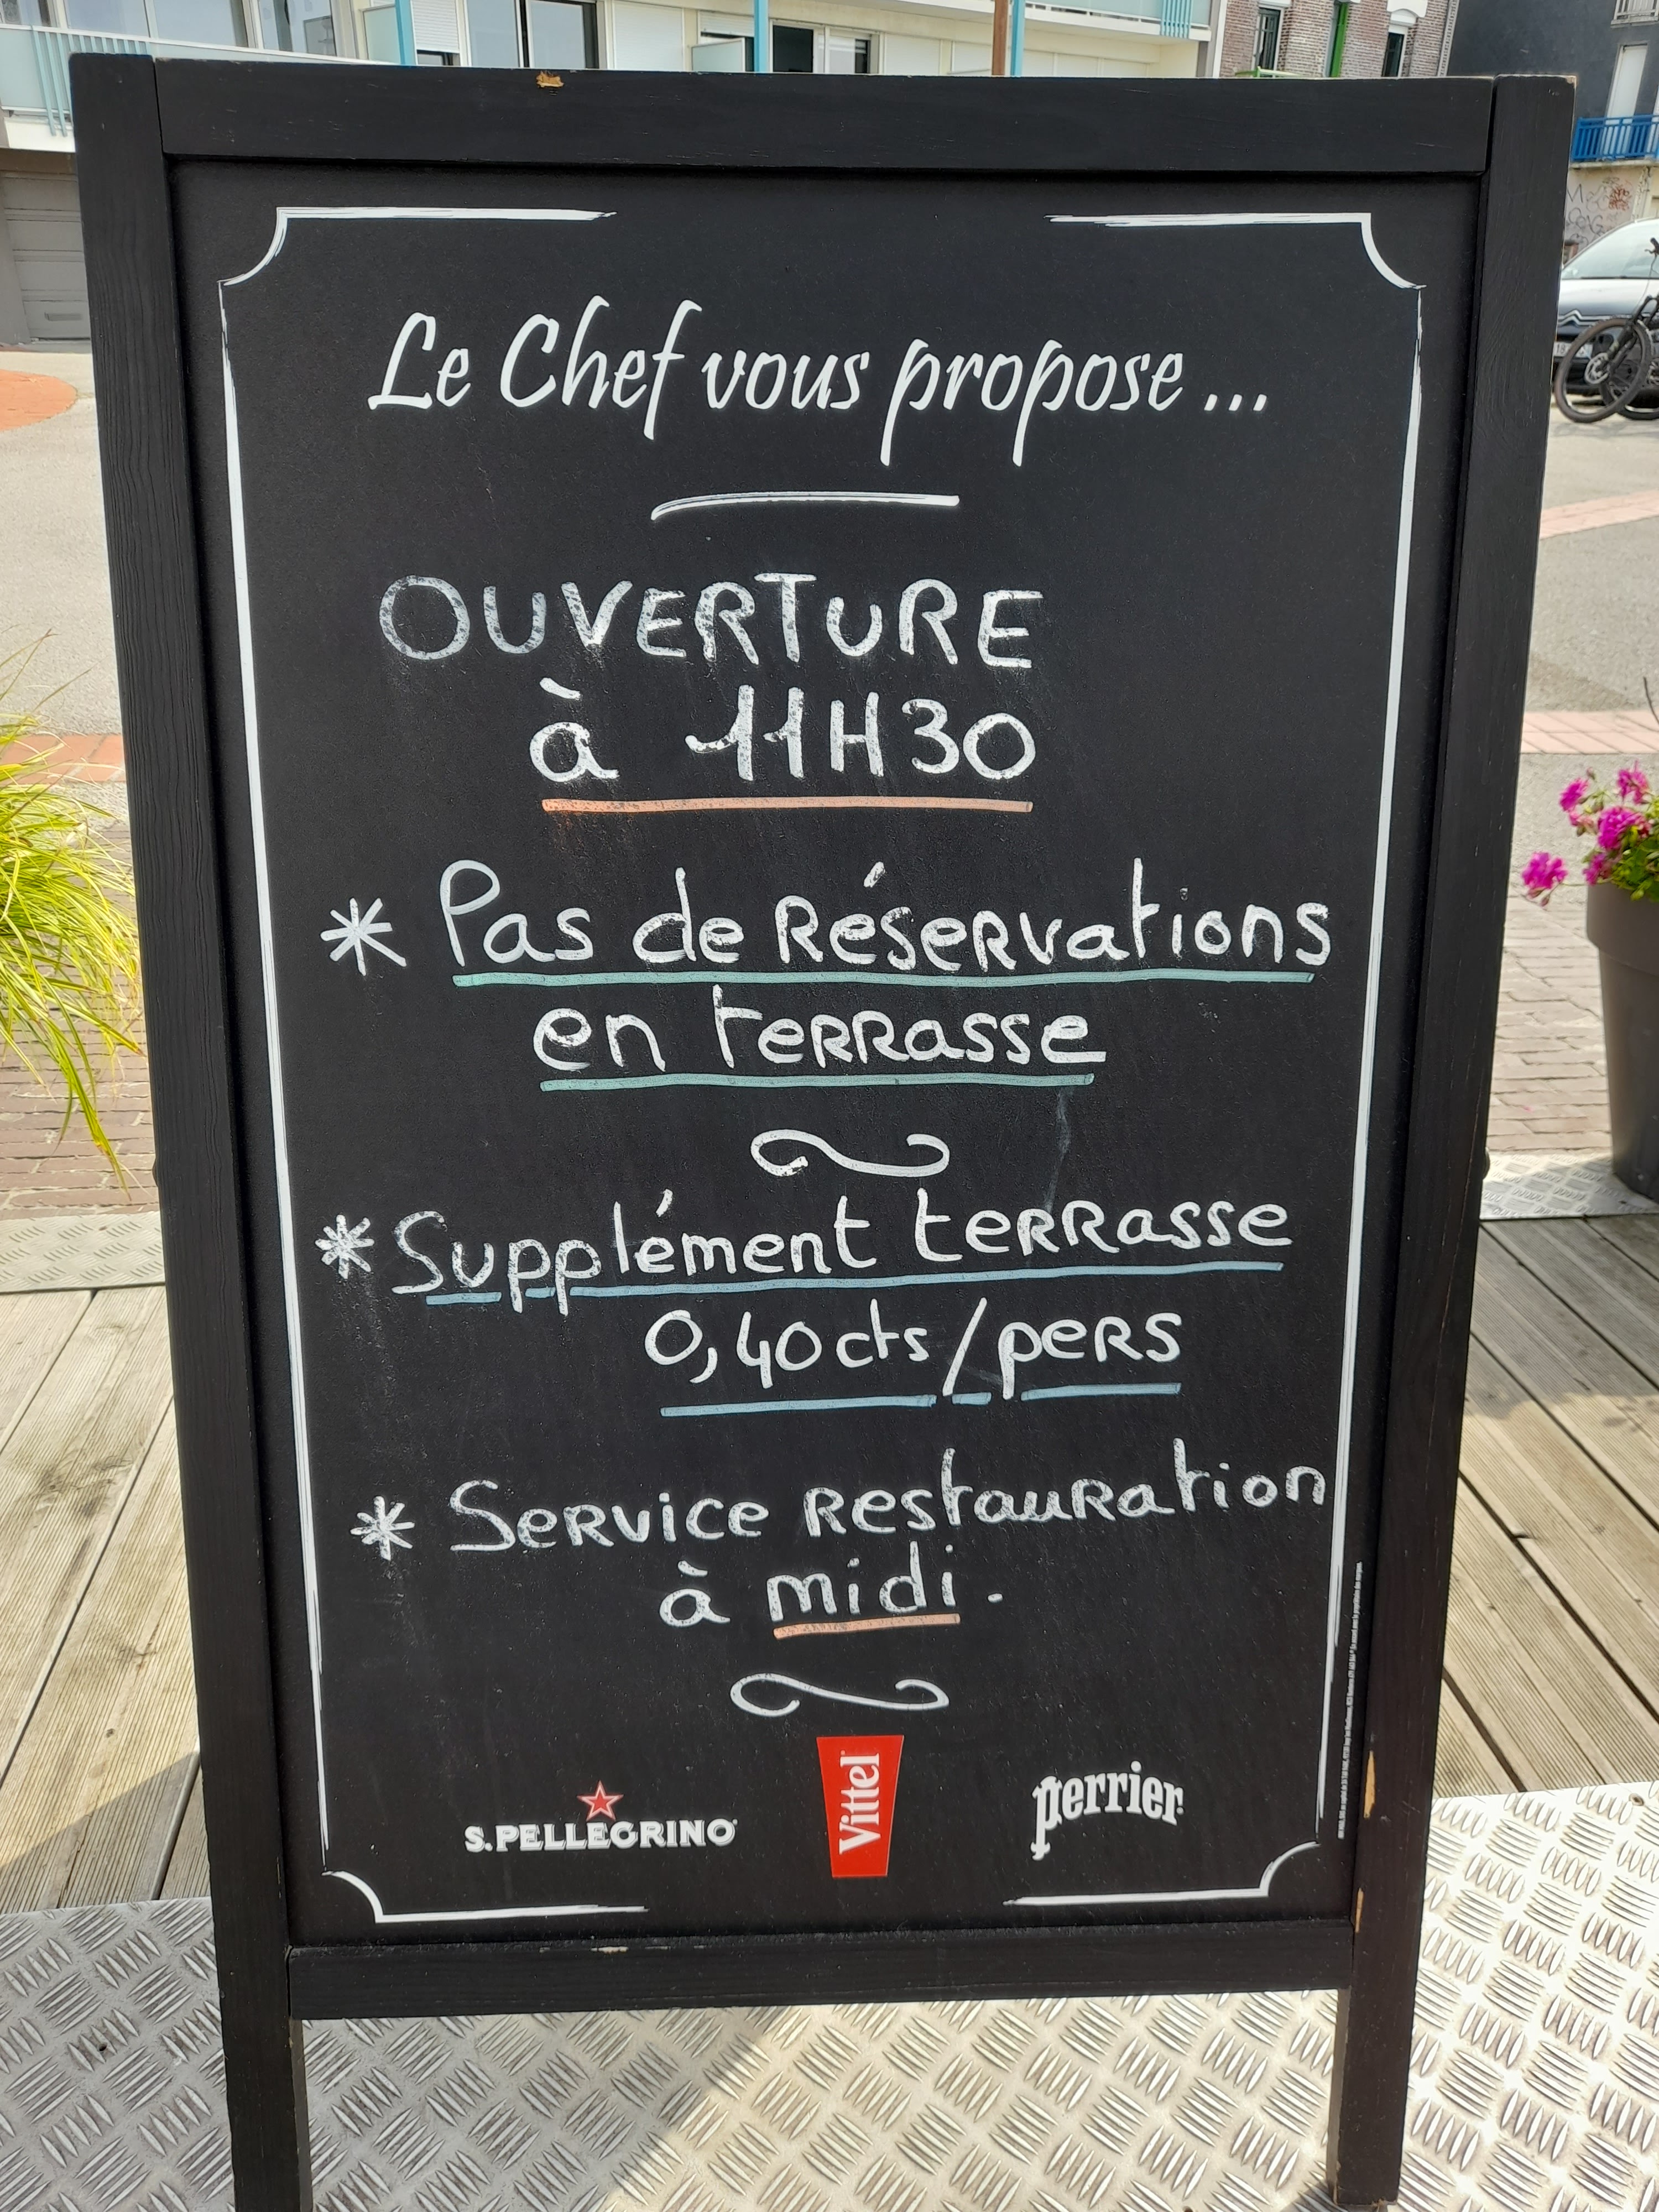 Le Chef vous propose ...
OUVERTURE
à 11H30
* Pas de Réservations
en terrasse
* Supplément terrasse
0,40 cts/pers
* Service restauration
à midi.
S.PELLEGRINO
Vittel
perrier